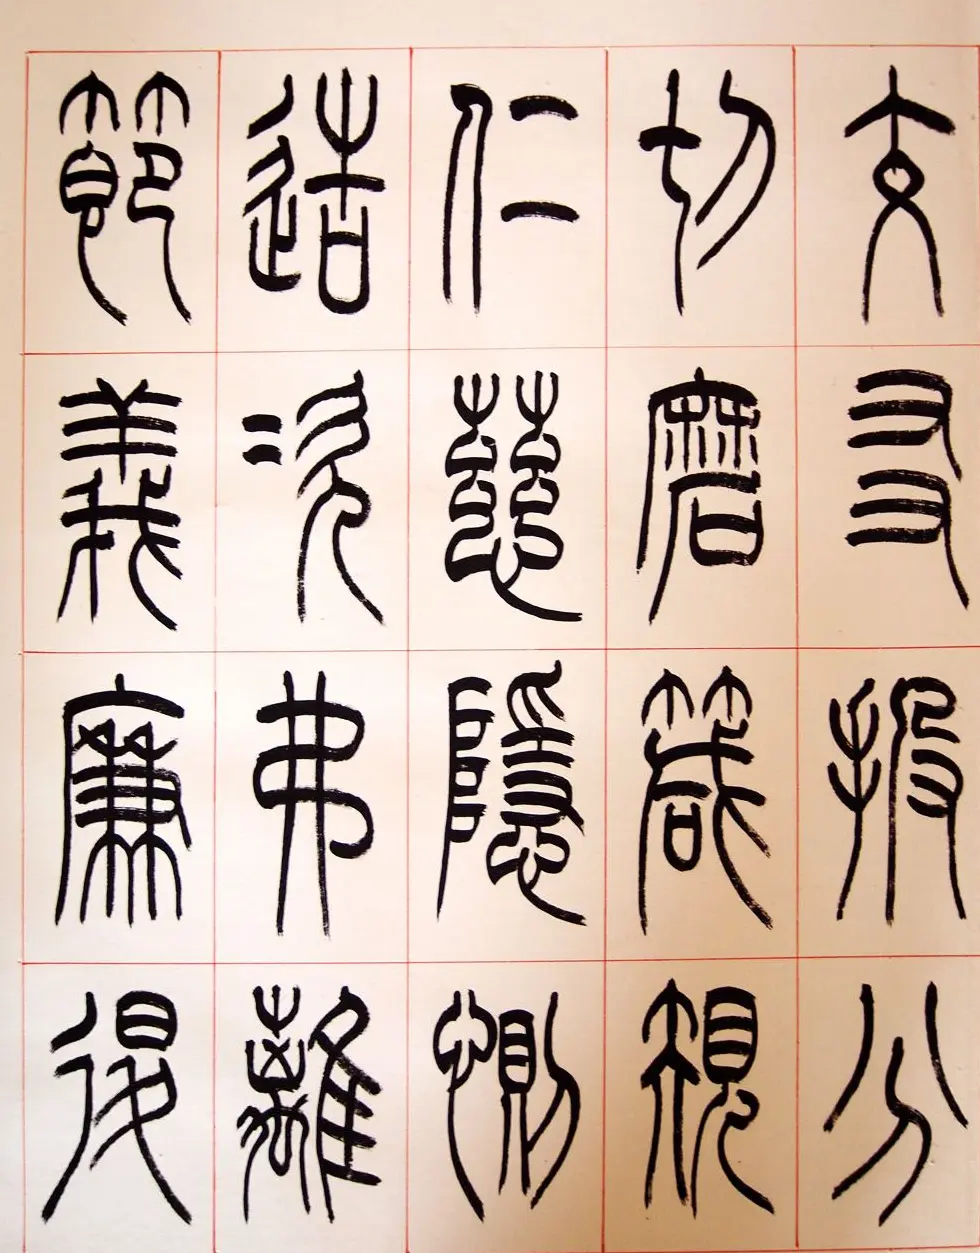 交友投分
切磨箴規
仁慈隱惻
造次弗離
節義廉退